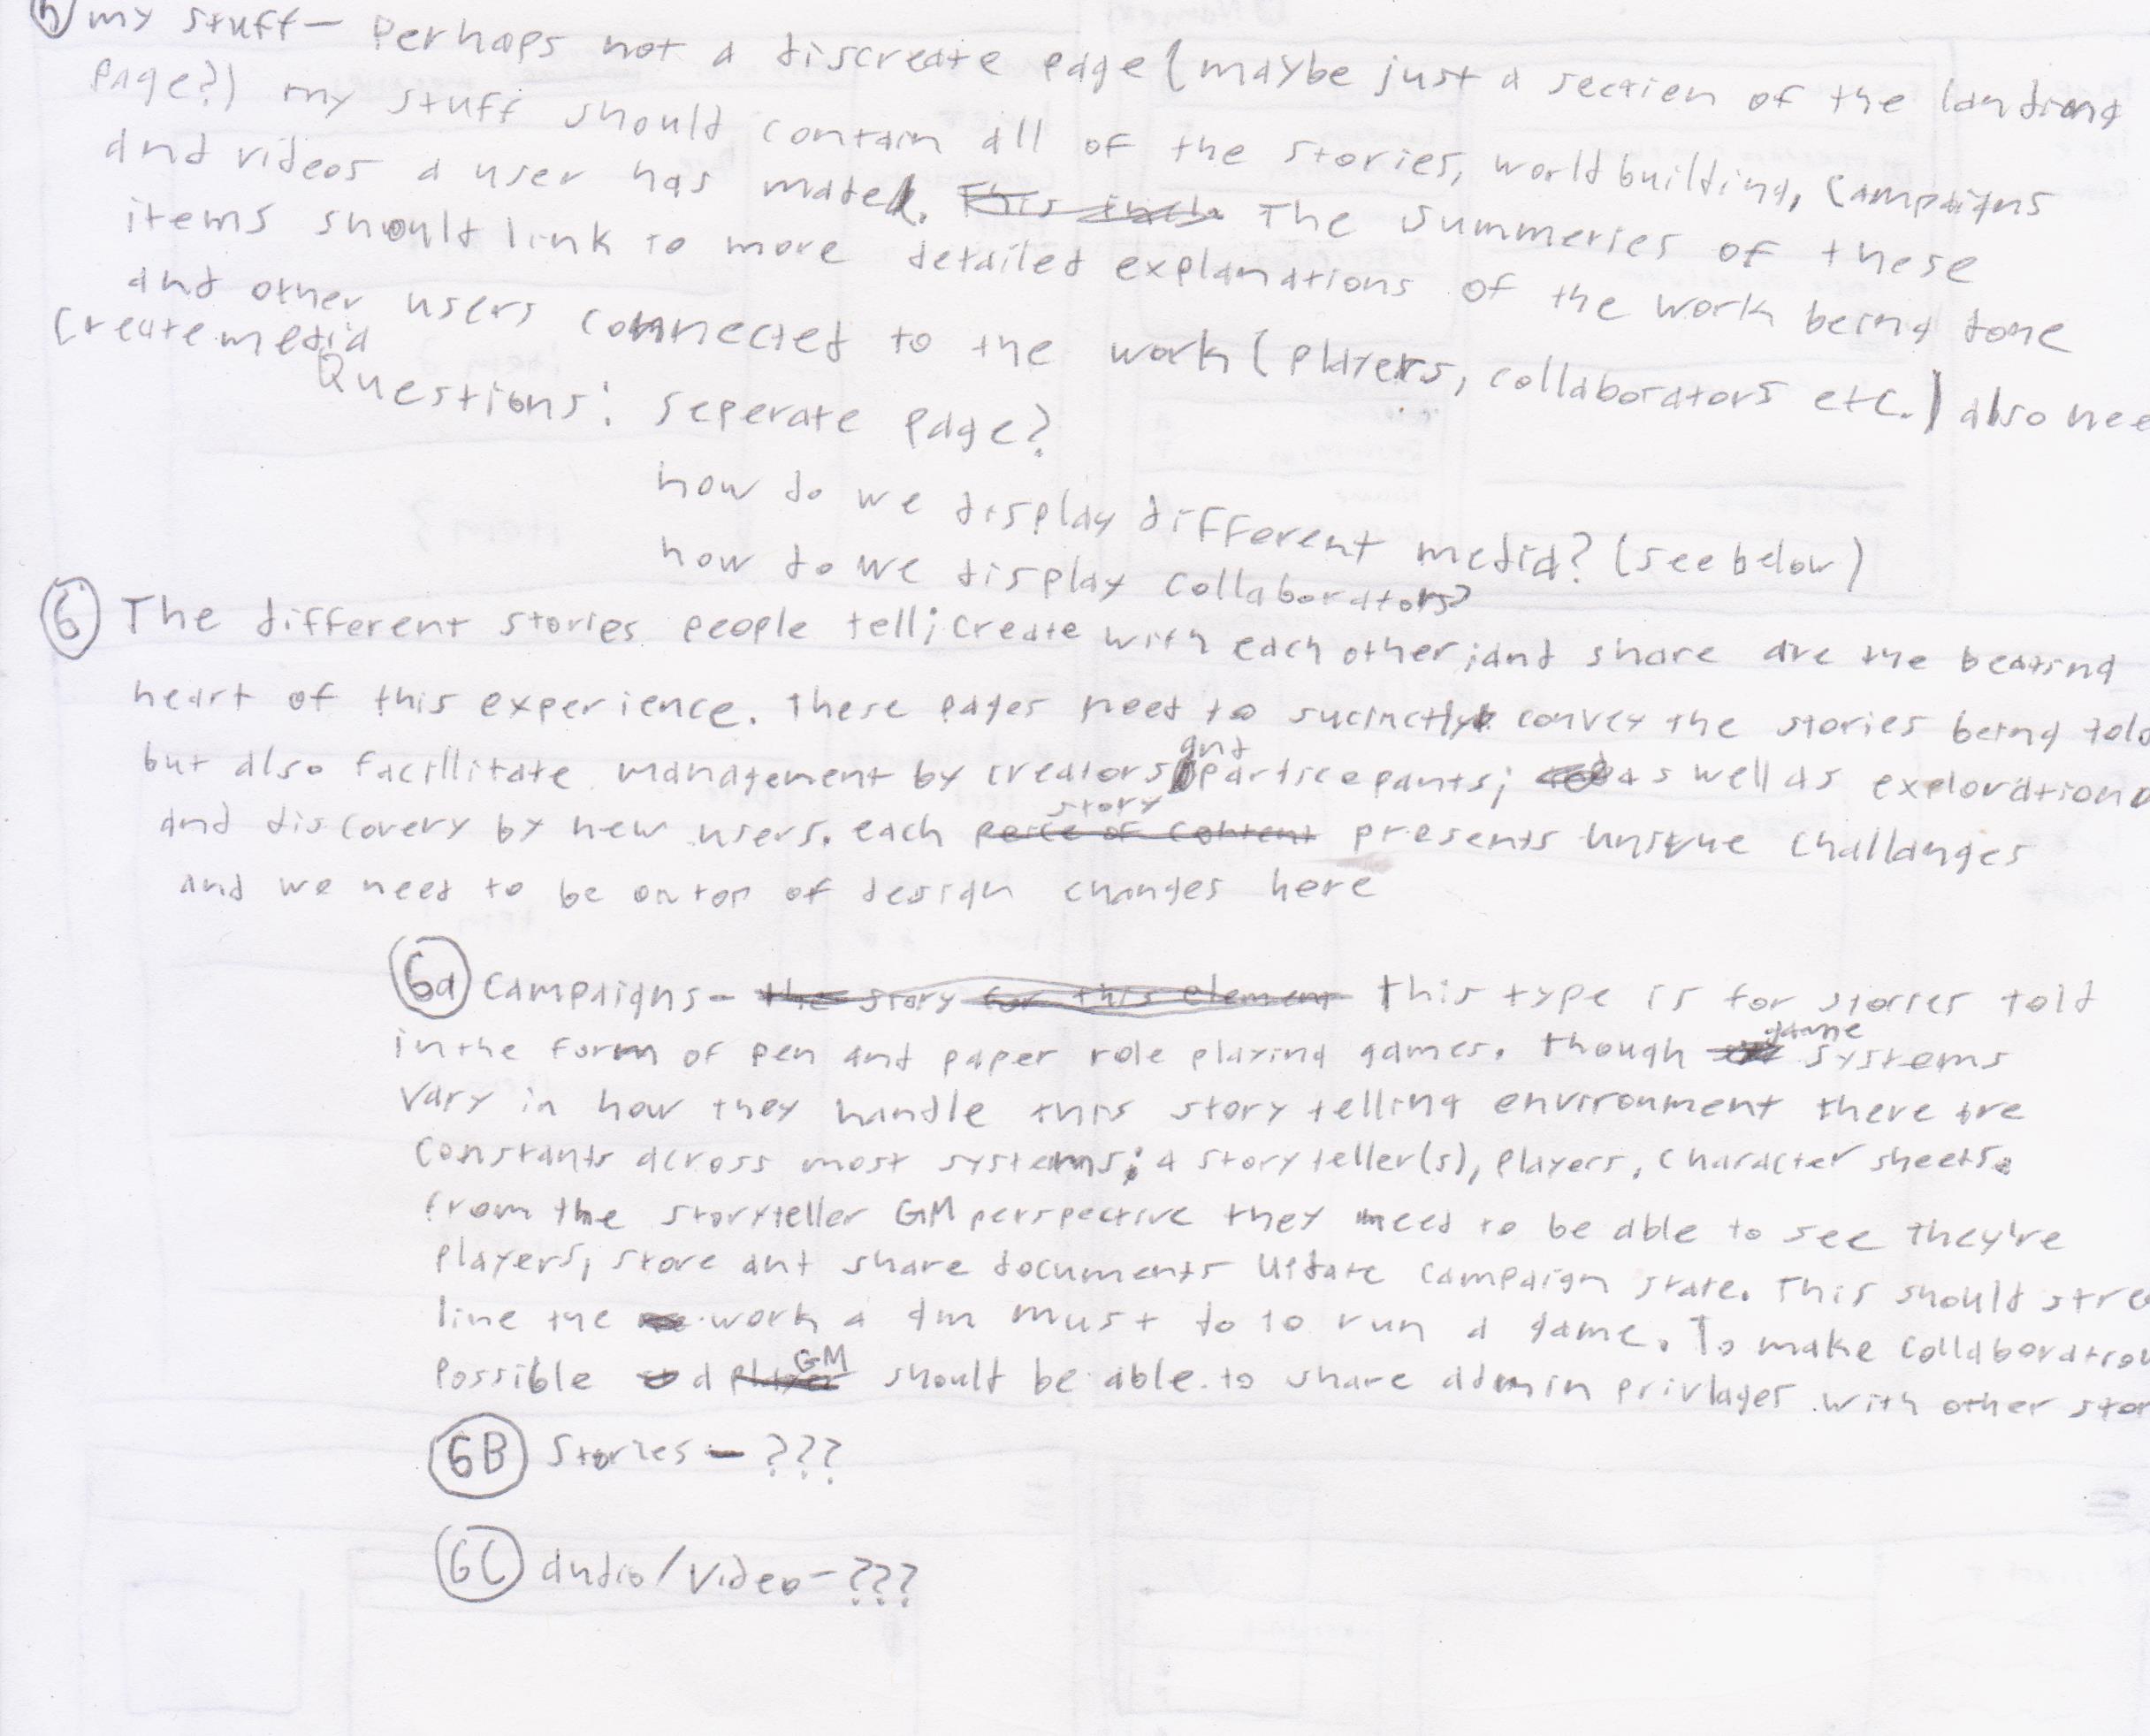 my stuff - Perhaps not a discreate page (maybe just a section of the landing
page?) my stuff should contain all of the stories, worldbuilding, campaigns
and videos a user has made. The summeries of these
items should link to more detailed explanations of the work being done
and other users connected to the work (players, collaborators etc.) also nee
create media
Questions: seperate page?
how do we display different media? (see below)
how do we display collaborators?
6 The different stories people tell; create with each other; and share are the beating
heart of this experience. These pages need to sucinctly convey the stories being told
but also facillitate management by creators and particepants; as well as exploration
and discovery by new users. each story peice of content presents unique challanges
and we need to be on top of design changes here
6a Campaigns - the story for this element This type is for stories told
in the form of pen and paper role playing games. Though game systems
vary in how they handle this story telling environment there are
constants across most systems; a story teller(s), players, character sheets.
from the storyteller GM perspective they need to be able to see they're
players, store and share documents update campaign state. This should stre
line the work a gm must do to run a game. To make collaboration
possible a player GM should be able to share admin privlages with other stor
6B Stories - ???
6C audio/video - ???